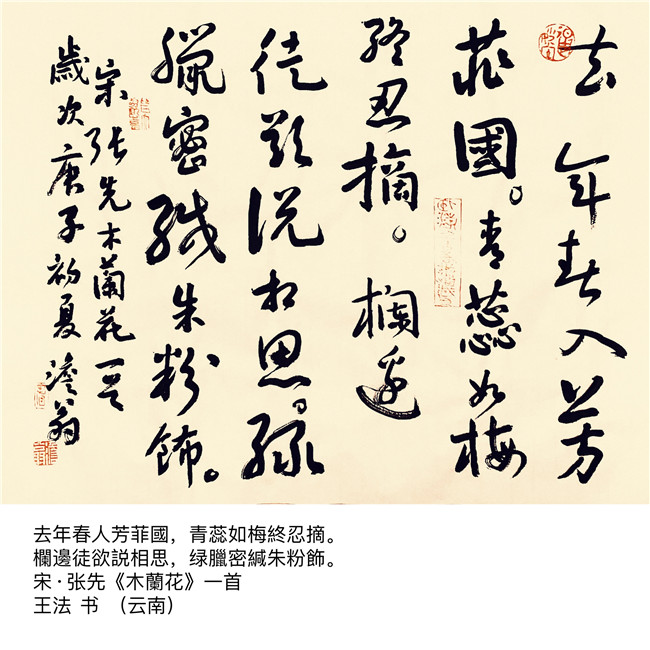 去年春入芳
菲國。青蕊如梅
終忍摘。欄邊
徒欲说相思。緑
臘密緘朱粉飾。
宋张先木蘭花一首
歲次庚子初夏 澹翁
去年春人芳菲國，青蕊如梅終忍摘。
欄邊徒欲説相思，绿臘密緘朱粉飾。
宋·张先《木蘭花》一首
王法 书 （云南）